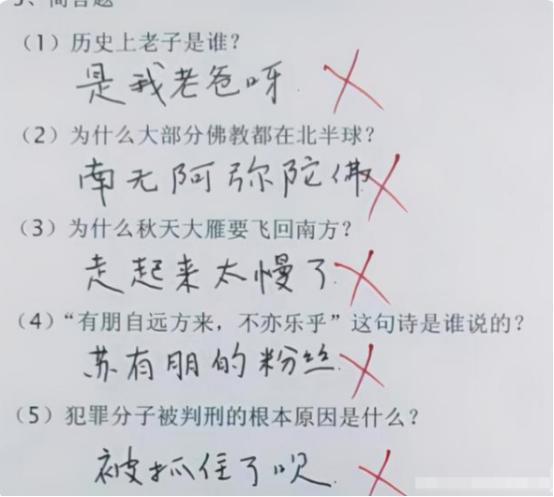 （1）历史上老子是谁？
是我老爸呀
（2）为什么大部分佛教都在北半球？
南无阿弥陀佛
（3）为什么秋天大雁要飞回南方？
走起来太慢了
（4）“有朋自远方来，不亦乐乎”这句诗是谁说的？
苏有朋的粉丝
（5）犯罪分子被判刑的根本原因是什么？
被抓住了呗